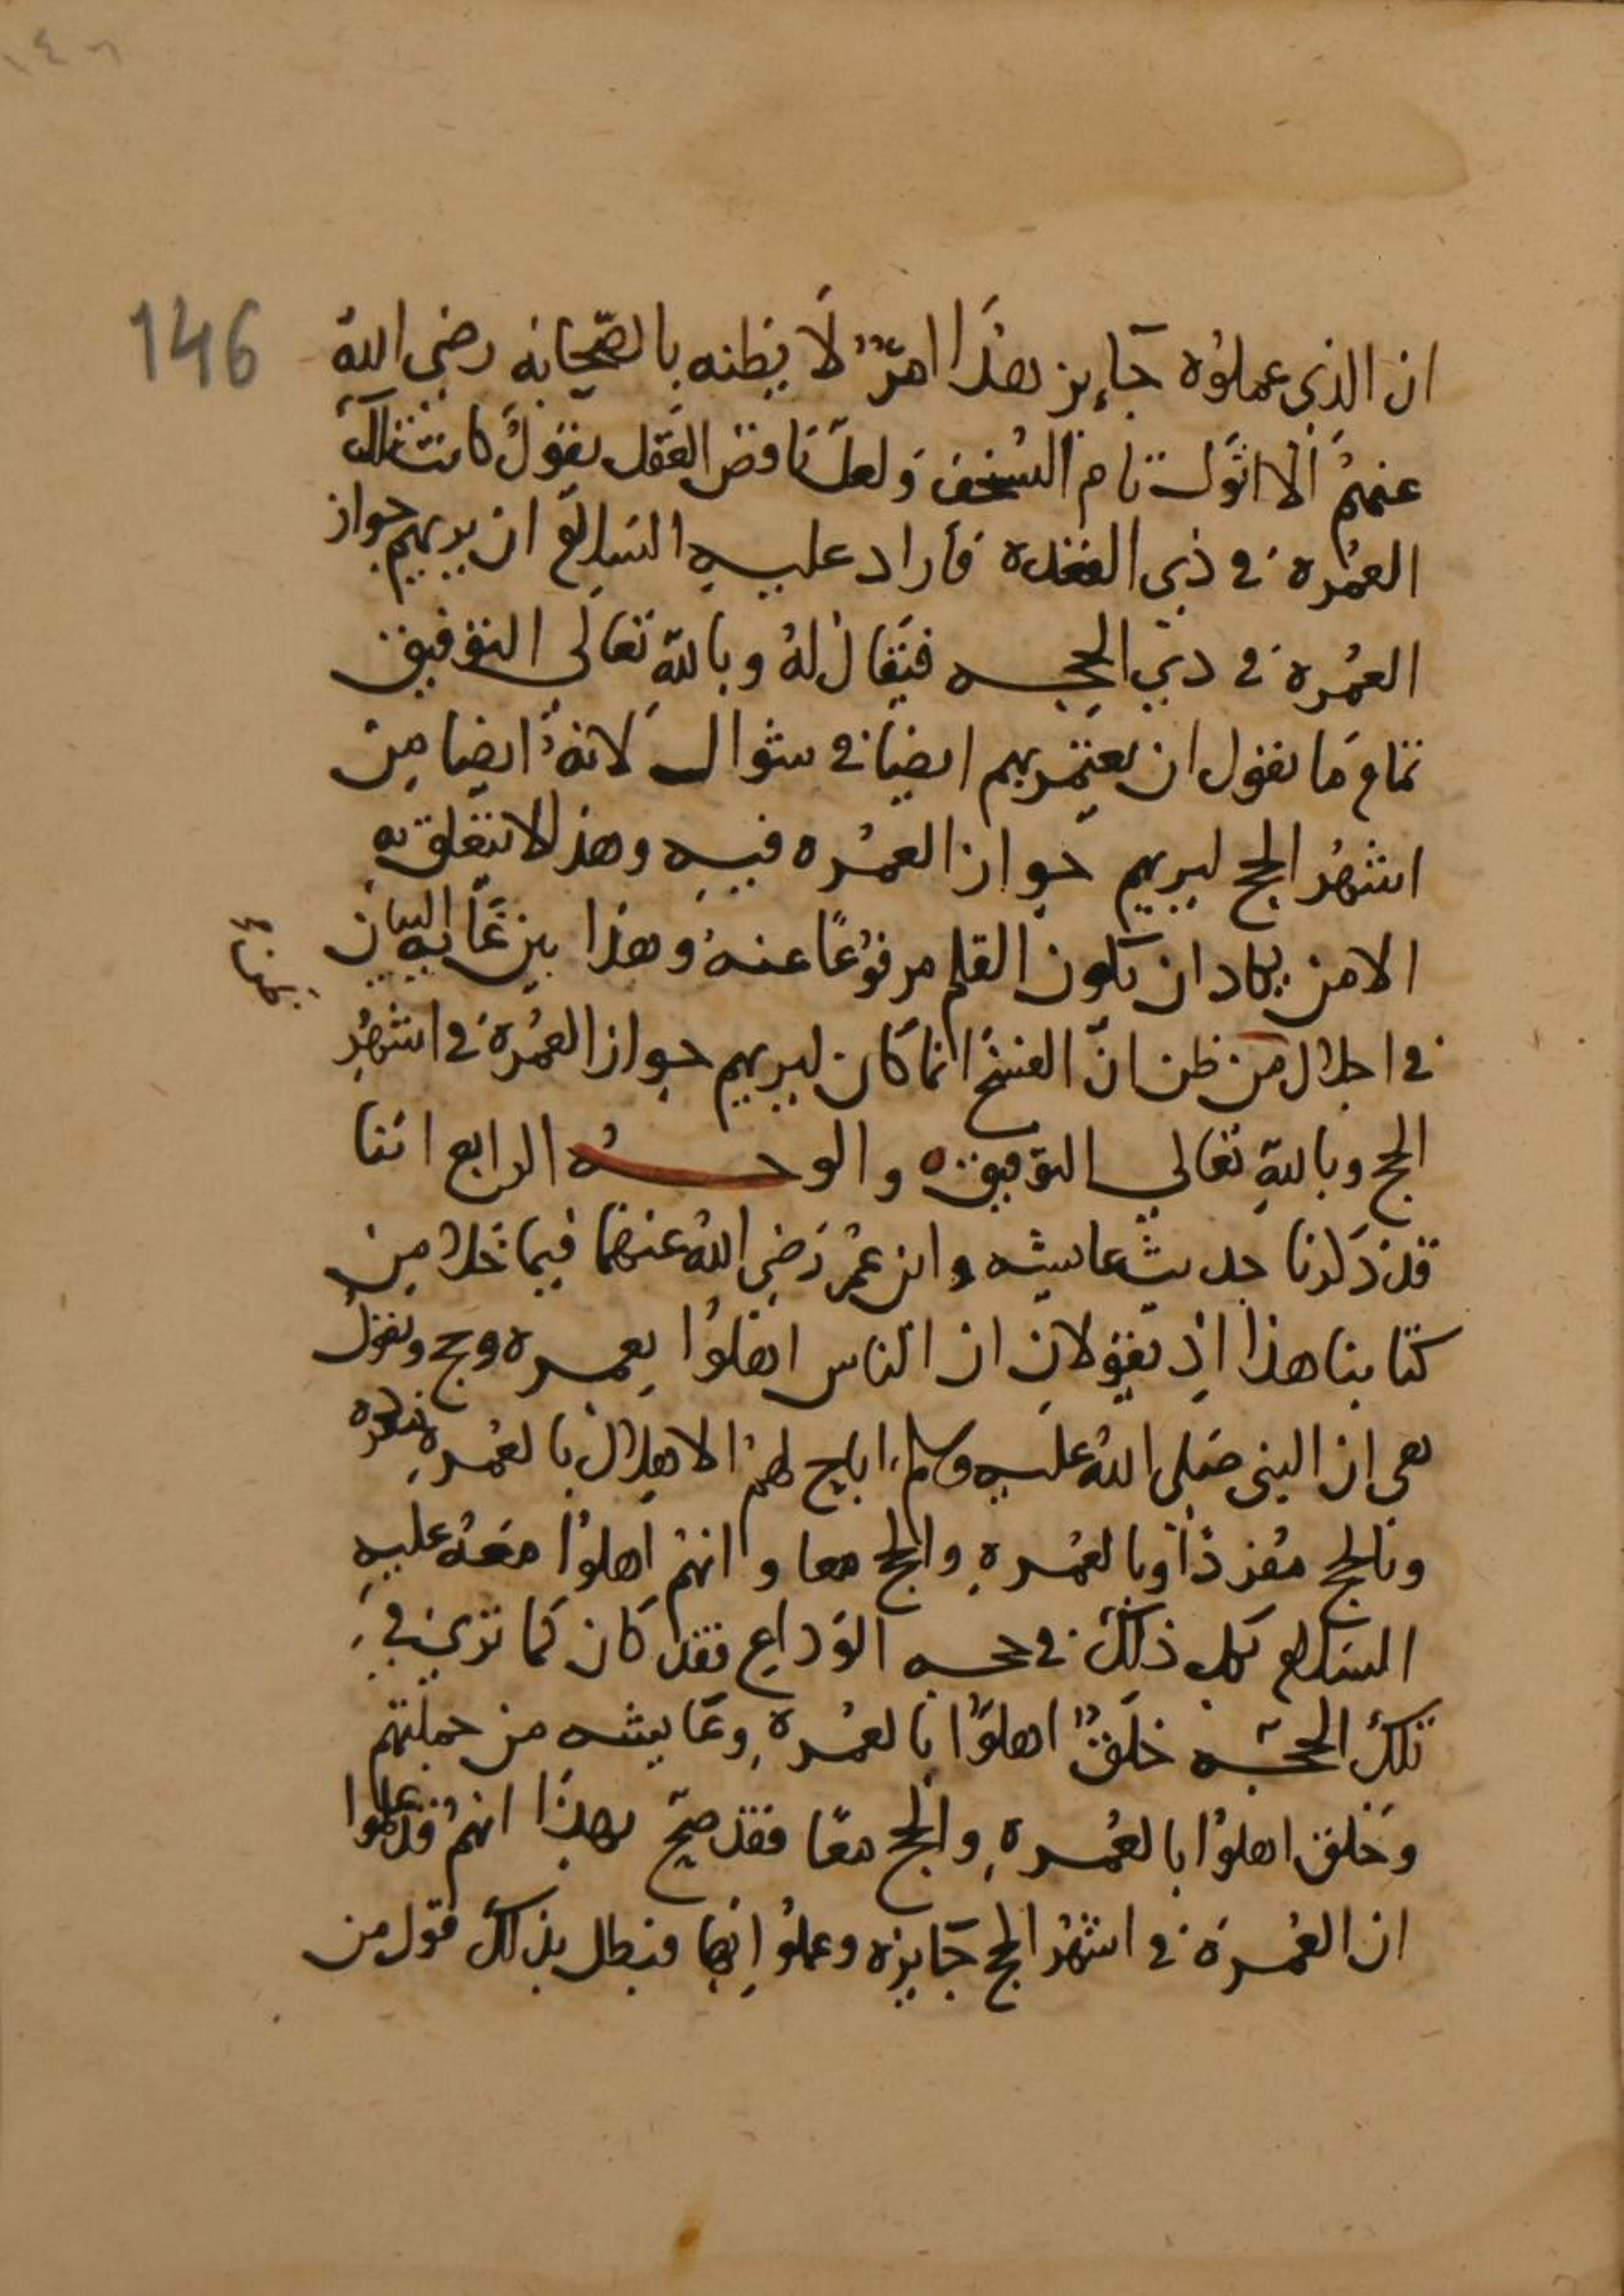 ١٤٦
146
ان الذي عملوه جايز هذا امرٌ لا يظنه بالصحابه رضي الله
عنهم الا انوك تام السخف ولعل ناقص العقل يقول كانت تلك
العمرة في ذي القعدة فاراد عليه السلام ان يريهم جواز
العمرة في ذي الحجه فيقال له وبالله تعالى التوفيق
تمام ما يقول ان يعتمر بهم ايضا في شوال لانه ايضا من
اشهر الحج ليريهم جواز العمره فيه وهذا لا يتعلق به
الا من يكاد ان يكون القلم مرفوعًا عنه وهذا بين غايه البيان
في اجلال من ظن ان الفسخ انما كان ليريهم جواز العمرة في اشهر
الحج وبالله تعالى التوفيق والوجه الرابع اننا
قد ذكرنا حديث عايشه وابن عمر رضي الله عنهما فيما خلا من
كتابنا هذا اذ يقولان ان الناس اهلوا بعمره وحج ونقول
يعي ان النبي صلى الله عليه وسلم اباح لهم الاهلال بالعمرة مفرده
وبالحج مفردًا وبالعمرة والحج معا وانهم اهلوا معه عليه
السلام بكل ذلك في حجه الوداع فقد كان كما ترى في
تلك الحجه خلقٌ اهلوا بالعمرة وعايشه من جملتهم
وخلق اهلوا بالعمرة والحج معًا فقد صح بهذا انهم قد علموا
ان العمرة في اشهر الحج جايزه وعملوا بها فبطل بذلك قول من